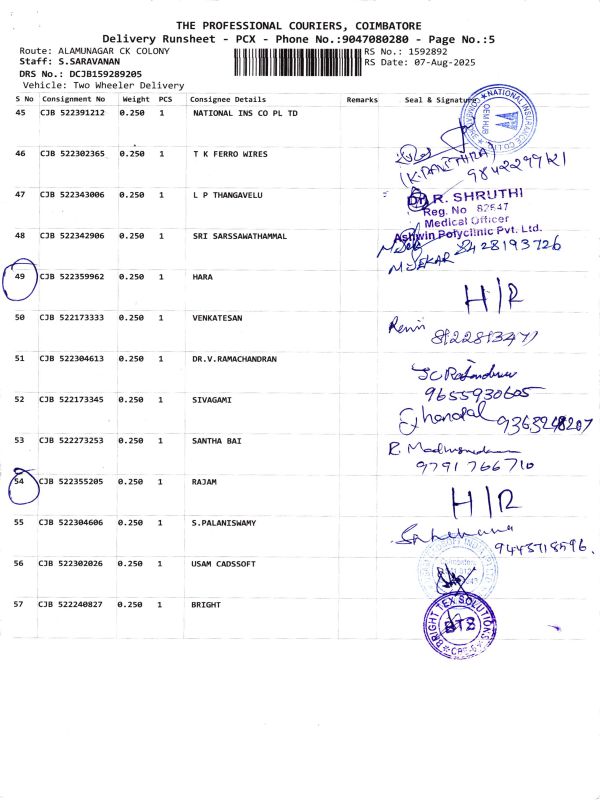 THE PROFESSIONAL COURIERS, COIMBATORE
Delivery Runsheet - PCX - Phone No.:9047080280 - Page No.:5
Route: ALAMUNAGAR CK COLONY
RS No.: 1592892
Staff: S.SARAVANAN
RS Date: 07-Aug-2025
DRS No.: DCJB159289205
Vehicle: Two Wheeler Delivery
S No Consignment No Weight PCS Consignee Details Remarks Seal & Signature
45 CJB 522391212 0.250 1 NATIONAL INS CO PL TD
46 CJB 522302365 0.250 1 T K FERRO WIRES
9842299121
47 CJB 522343006 0.250 1 L P THANGAVELU
Dr. R. SHRUTHI
Reg. No 82547
Medical Officer
Ashwin Polyclinic Pvt. Ltd.
48 CJB 522342906 0.250 1 SRI SARSSAWATHAMMAL
8428193726
M.SEKAR
49 CJB 522359962 0.250 1 HARA
H|R
50 CJB 522173333 0.250 1 VENKATESAN
51 CJB 522304613 0.250 1 DR.V.RAMACHANDRAN
9655930605
52 CJB 522173345 0.250 1 SIVAGAMI
53 CJB 522273253 0.250 1 SANTHA BAI
9791766710
54 CJB 522355205 0.250 1 RAJAM
H|R
55 CJB 522304606 0.250 1 S.PALANISWAMY
9443718596.
56 CJB 522302026 0.250 1 USAM CADSSOFT
57 CJB 522240827 0.250 1 BRIGHT
BRIGHT TEX SOLUTIONS
BTS